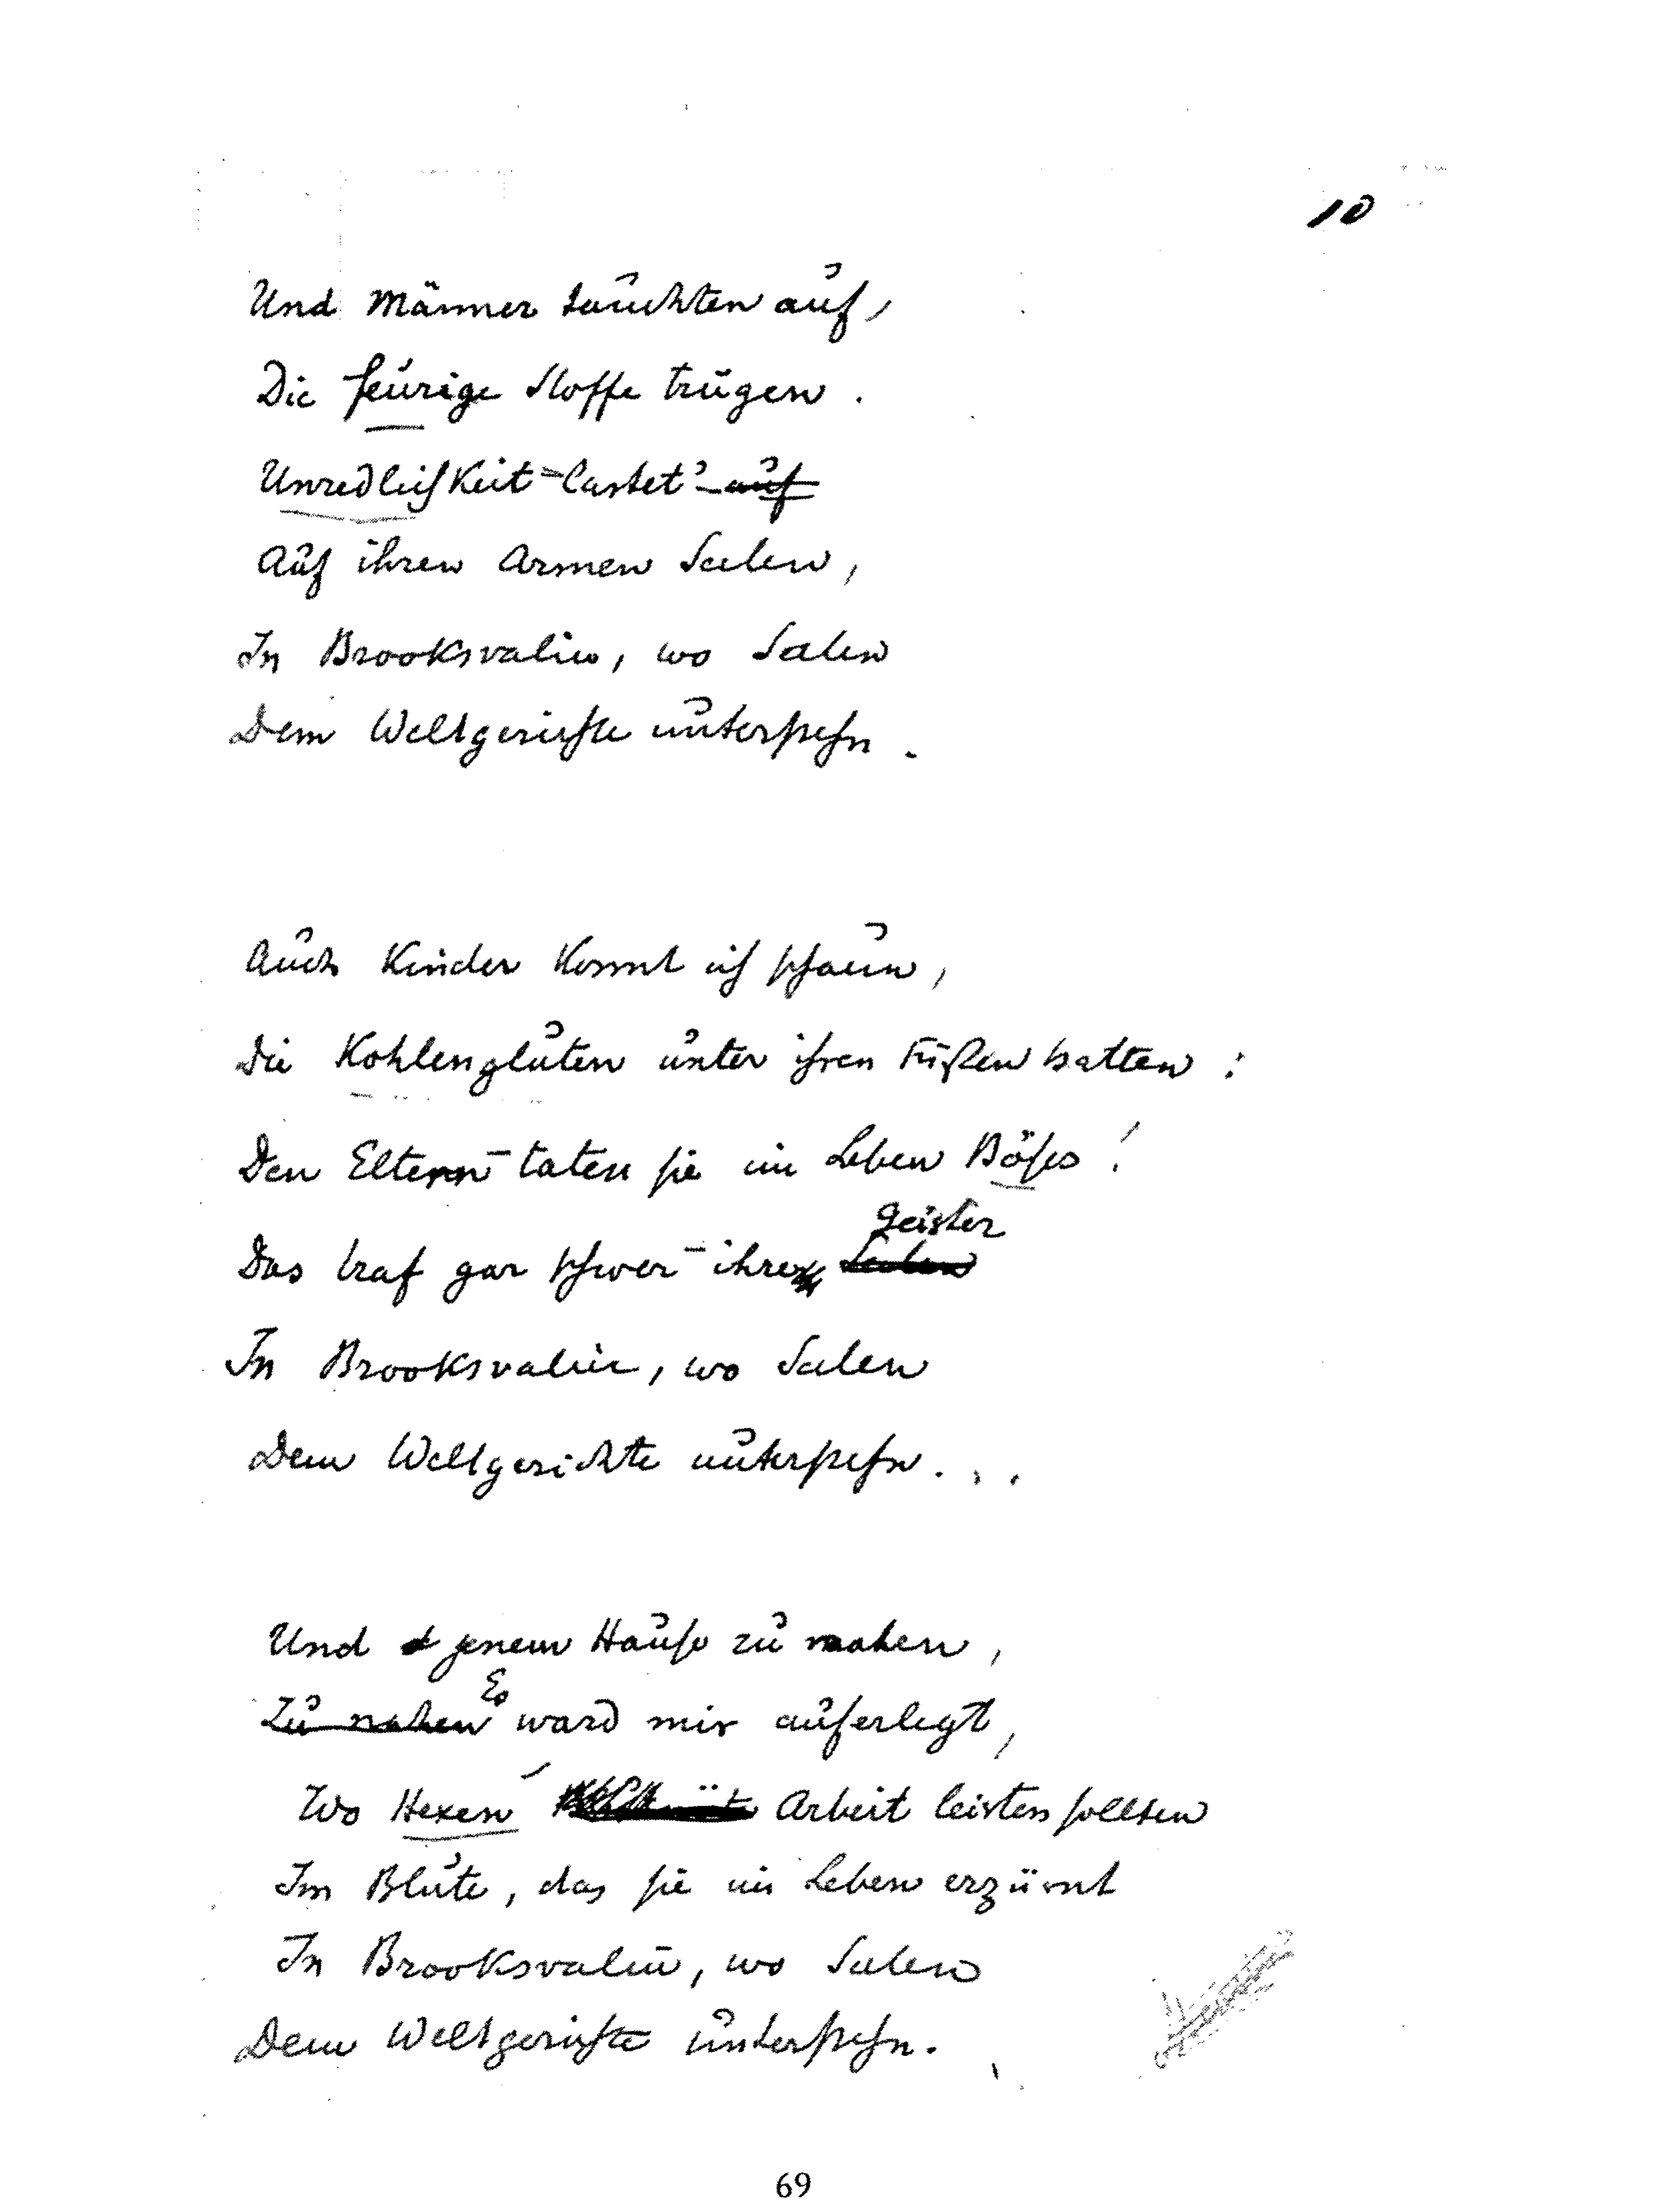 10
Und Männer tauchten auf,
Die feurige Stoffe trugen.
Unredlichkeit lastet' auf
Auf ihren Armen Seelen,
In Brooksvalin, wo Seelen
Dem Weltgerichte unterstehn.
Auch Kinder konnt ich schaun,
Die Kohlengluten unter ihren Füßen hatten:
Den Eltern taten sie im Leben Böses!
Geister
Das traf gar schwer ihre Seelen
In Brooksvalin, wo Seelen
Dem Weltgerichte unterstehn...
Und jenem Hause zu nahen,
Es
Zu nahen ward mir auferlegt,
Wo Hexen Arbeit leisten sollten
Im Blute, das sie im Leben erzürnt
In Brooksvalin, wo Seelen
Dem Weltgerichte unterstehn.
69